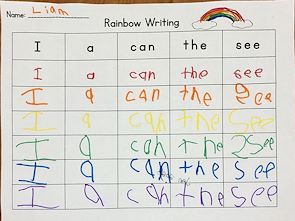 Name: Liam
Rainbow Writing
I a can the see
I a can the see
I a can the see
I a can the see
I a can the See
I a can the see
I a can the see